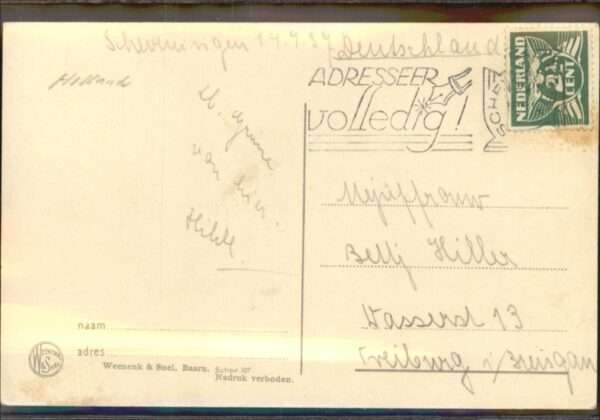 Scheveningen 14.9.39 Deutschland
Holland
NEDERLAND
2½
CENT
ADRESSEER
volledig!
SCHEV
von hier.
Mejuffrouw
Betty Hiller
Wasserst 13
Freiburg i/Breisgau
naam
adres
Weenenk & Snel, Baarn. Schev 107
Nadruk verboden.